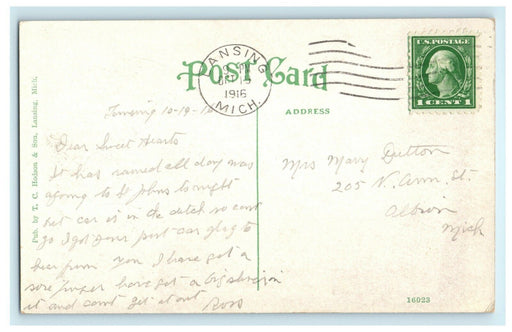 LANSING
OCT 19
1916
MICH.
Post Card
U.S. POSTAGE
1 CENT 1
ADDRESS
Pub. by T. C. Hodson & Son, Lansing, Mich.
Lansing 10-19-16
Dear Sweet Hearts
It has rained all day was
agoing to St Johns to night
but car is in the ditch so cant
go I got your post car glag to
hear from you I have got a
sore finger have got a big sliver in
it and cant get it out
Ross
Mrs Mary Dutton
205 N. Ann. St.
Albion
Mich
16023